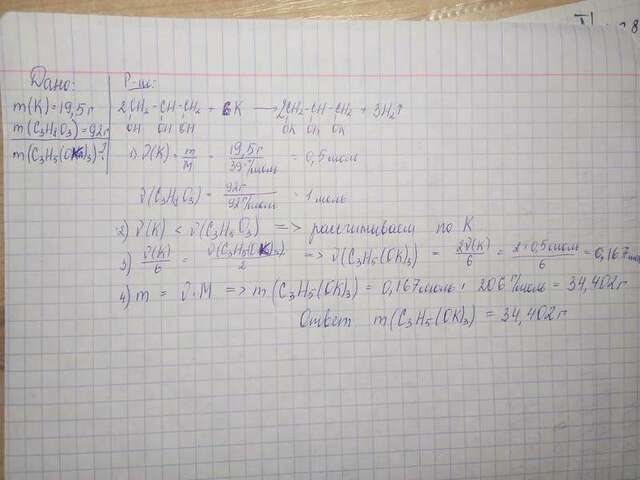 Дано:
m(K) = 19,5 г
m(C₃H₈O₃) = 92 г
m(C₃H₅(OK)₃) - ?
Р-ие:
2CH₂ - CH - CH₂ + 6K → 2CH₂ - CH - CH₂ + 3H₂↑
OH OH OH OK OK OK
1) ϑ(K) = m/M = 19,5 г / 39 г/моль = 0,5 моль
ϑ(C₃H₈O₃) = 92 г / 92 г/моль = 1 моль
2) ϑ(K) < ϑ(C₃H₈O₃) => рассчитываем по K
3) ϑ(K)/6 = ϑ(C₃H₅(OK)₃)/2 => ϑ(C₃H₅(OK)₃) = 2ϑ(K)/6 = 2·0,5 моль/6 = 0,167 мол
4) m = ϑ·M => m(C₃H₅(OK)₃) = 0,167 моль · 206 г/моль = 34,402 г
Ответ m(C₃H₅(OK)₃) = 34,402 г